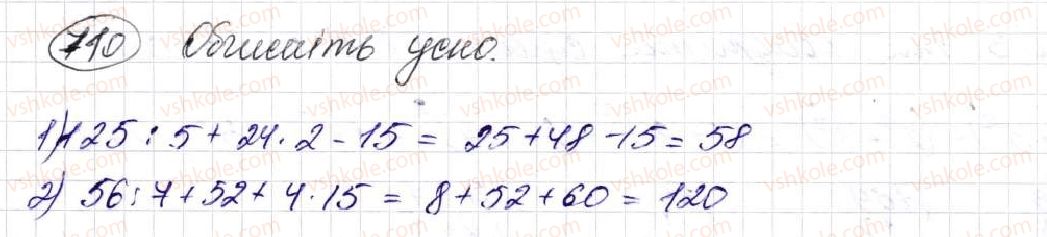 710 Обчисліть усно.
1) 125 : 5 + 24 · 2 - 15 = 25 + 48 - 15 = 58
2) 56 : 7 + 52 + 4 · 15 = 8 + 52 + 60 = 120